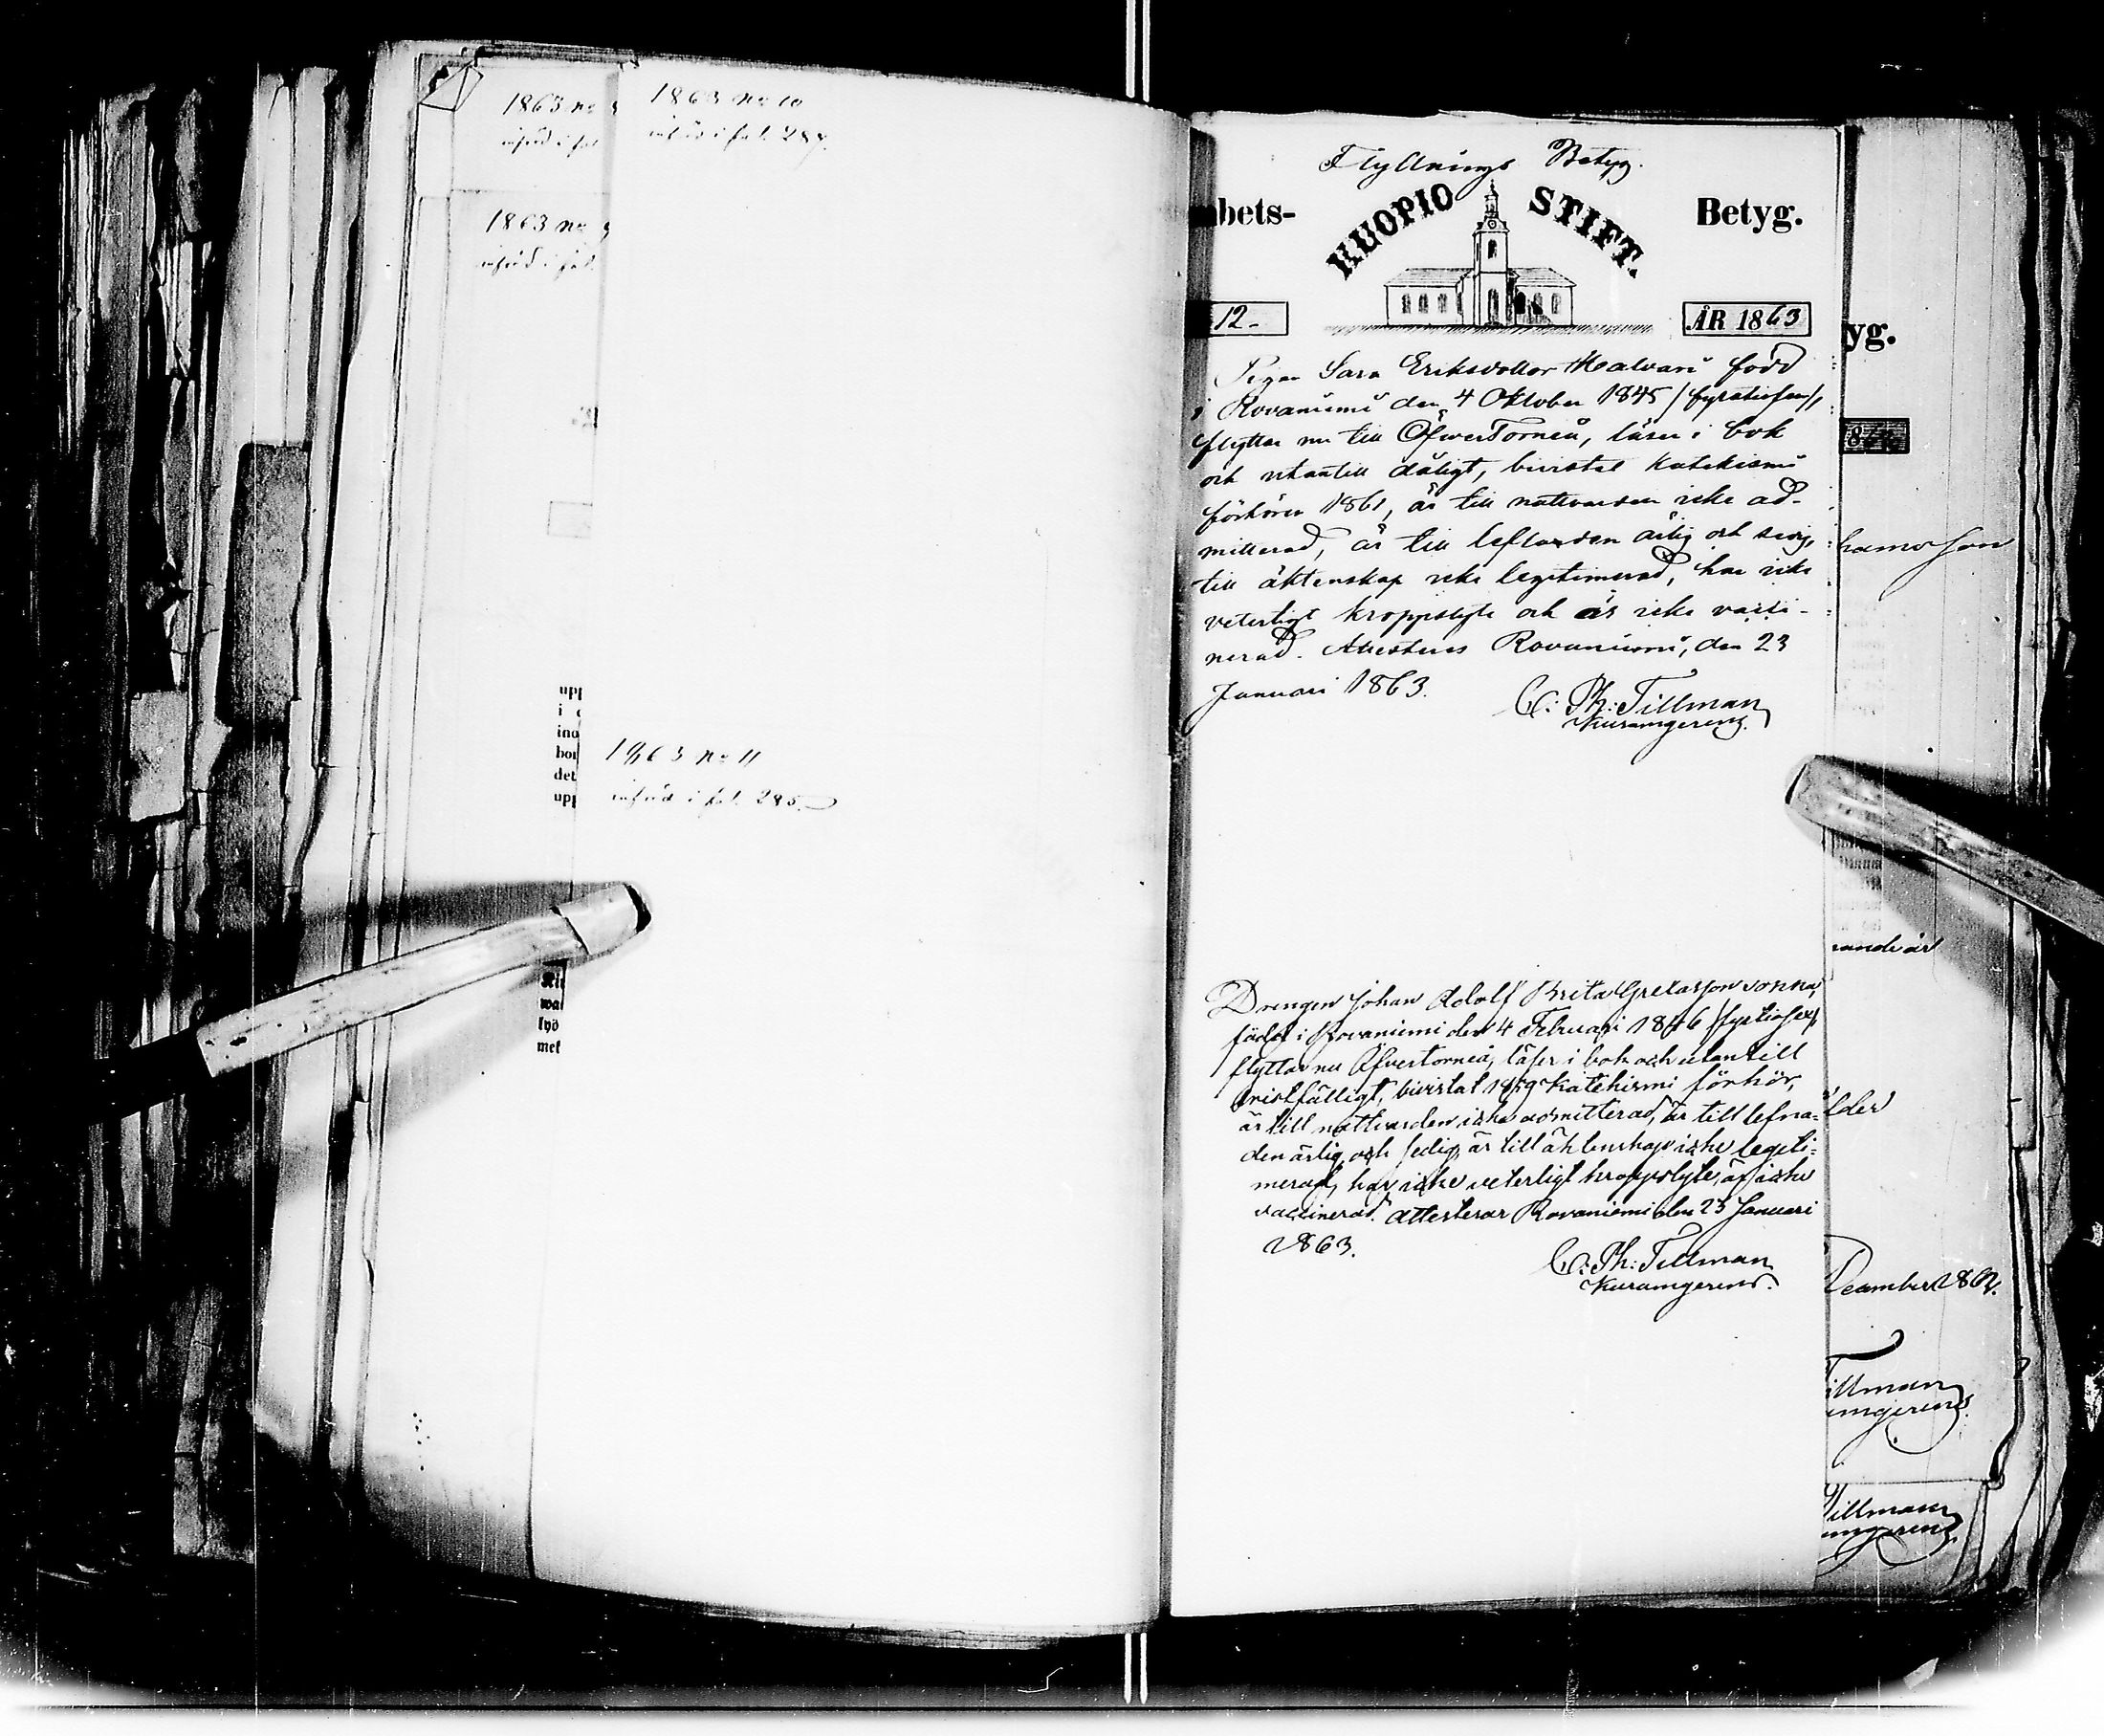 1863 no
införd i fol
1863 no 10
införd i fol. 287.
1863 no
införd i fol.
upp
i
ino
bor
det
upp
1863 no 11
införd i fol. 285.
wa
lyd
met
Flyttnings Betyg.
bets-
KUOPIO STIFT.
Betyg.
12.
ÅR 1863
Pigan Sara Eriksdotter Halvari född
i Rovaniemi den 4 Oktober 1845 /fyratiofem/,
flyttar nu till ÖfwerTorneå, läser i bok
och utantill dåligt, bivistat katekismi
förhören 1861, är till nattvarden icke ad-
mitterad, är till lefnaden ärlig och sedig,
till äktenskap icke legitimerad, har icke
veterligt kroppslyte och är icke vacci-
nerad. Attesteras Rovaniemi, den 23
Januari 1863.
C: Ph: Tillman
Kuramgerens.
Drengen Johan Adolf Brita Gretasson
född i Rovaniemi den 4 Februari 1846 /fyrtiosex/
flyttar nu Öfvertorneå, läser i bok och utantill
bristfälligt, bivistat 1859 Katekismi förhör,
är till nattvarden icke admitterad, är till lefna=
den ärlig och sedig, är till äktenskap icke legiti=
merad, har icke veterligt kroppslyte, är icke
vaccinerad. Attesterar Rovaniemi den 23 Januari
1863.
C: Ph: Tillman
Kuramgerens.
yg.
ande är
ilder
December 1862.
Tillman
amgerens.
Tillman
amgerens.